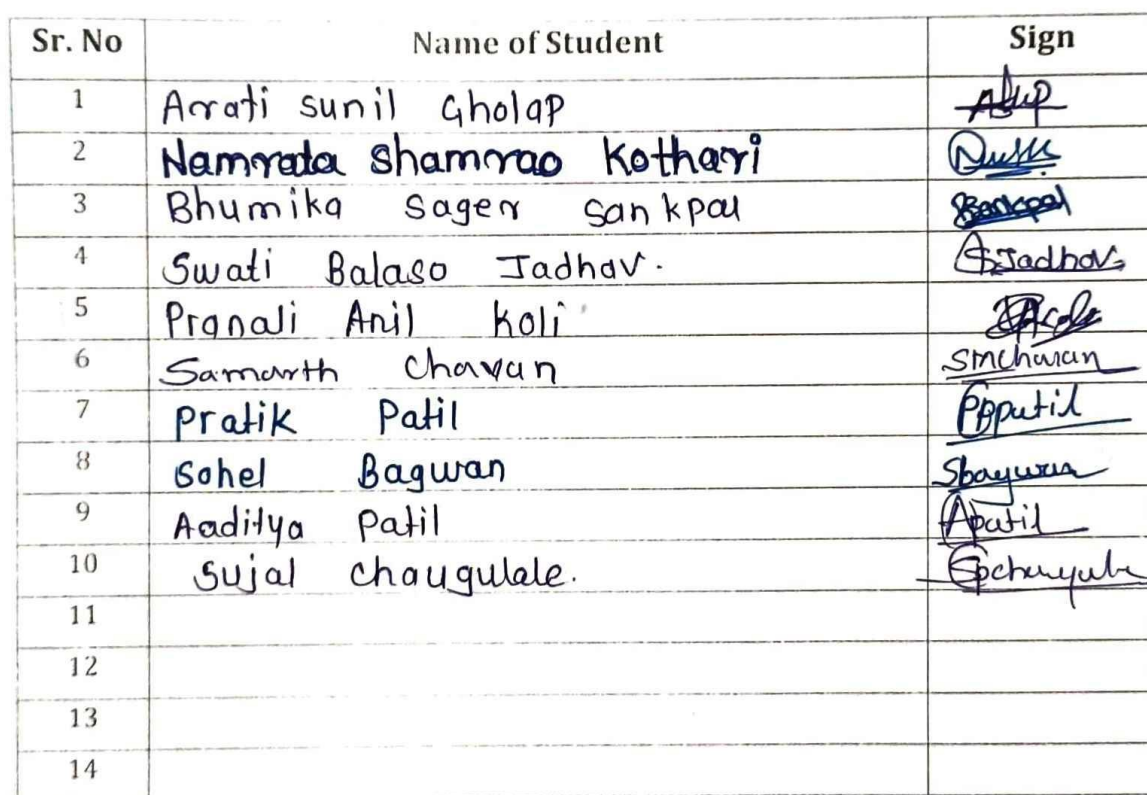 Sr. No Name of Student Sign
1 Arati sunil Gholap
2 Namrata Shamrao Kothari
3 Bhumika Sager Sankpal Sankpal
4 Swati Balaso Jadhav. SJadhav
5 Pranali Anil Koli
6 Samarth Chavan Smchavan
7 Pratik Patil PPpatil
8 Sohel Bagwan Sbagwan
9 Aaditya Patil Apatil
10 Sujal Chaugulale.
11
12
13
14